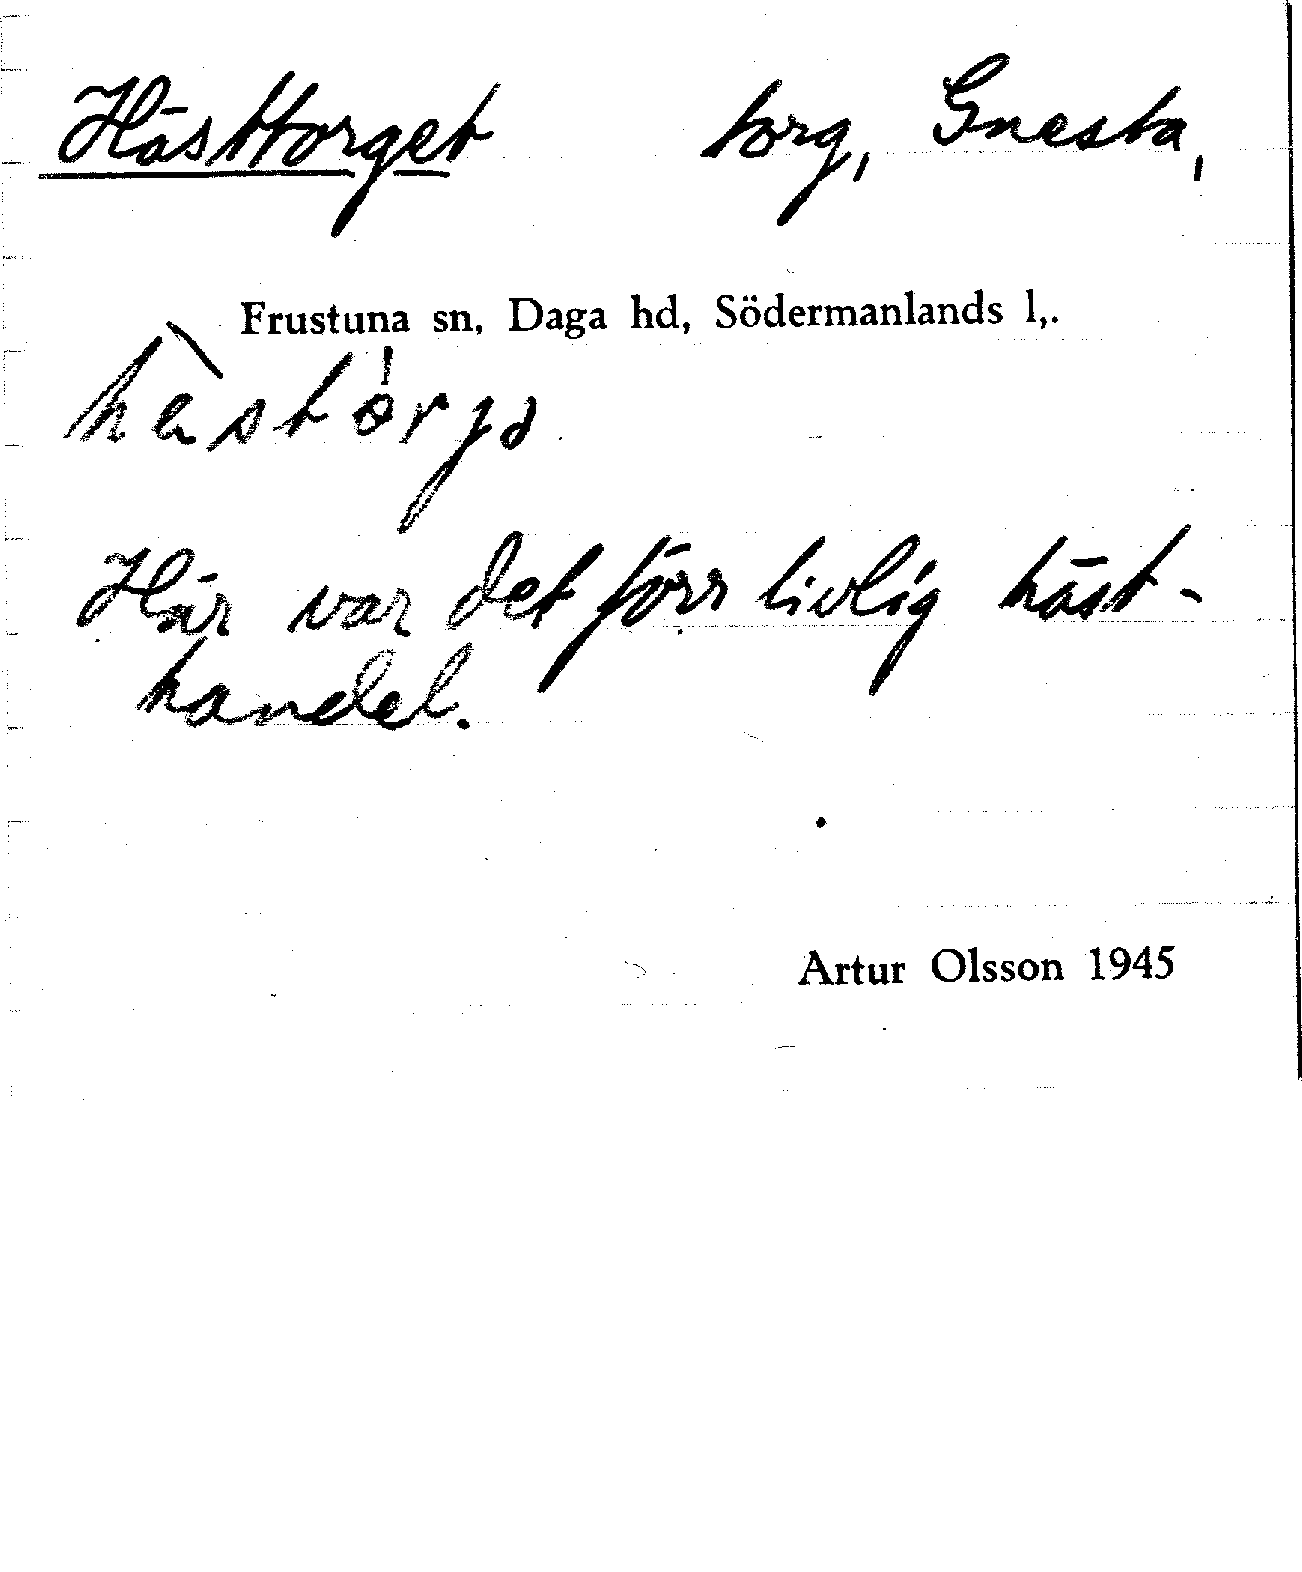 Hästtorget torg, Gnesta,
Frustuna sn, Daga hd, Södermanlands l,.
Här var det förr livlig häst-
handel.
Artur Olsson 1945